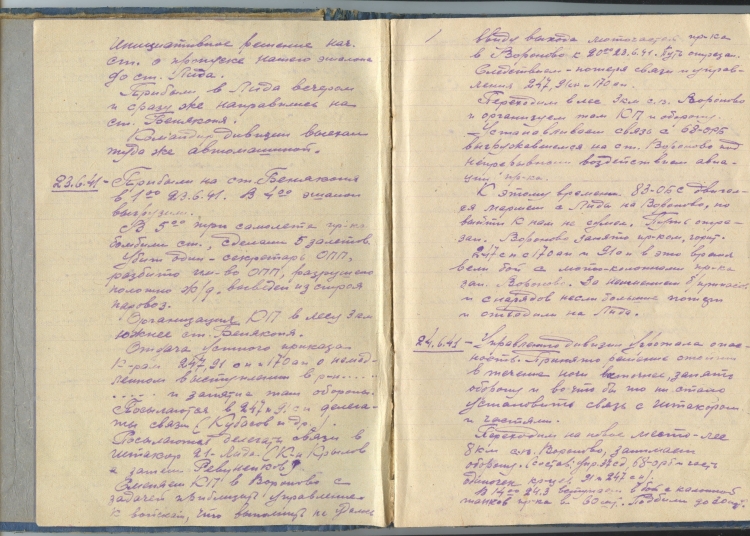 инициативное решение нач.
ст. о пропуске нашего эшелона
до ст. Лида.
Прибыли в Лида вечером
и сразу же направились на
ст. Бенякони.
Командир дивизии выехал
туда же автомашиной.
23.6.41 - Прибыли на ст. Бенякони
в 1⁰⁰ 23.6.41. В 4⁰⁰ эшелон
выгрузили.
В 5⁰⁰ три самолета пр-ка
бомбили ст., сделали 5 залетов.
Убит один - секретарь ОПП,
разбито им-во ОПП, разрушено
полотно ж/д, выведен из строя
паровоз.
Организация КП в лесу 3 км
южнее ст. Бенякони.
Отдача устного приказа
к-рам 247, 91 сп и 170 ап о немед-
ленном выступлении в р-н.....
..... и занятие там обороны.
Посылаются в 247 и 91 сп делега-
ты связи (Кугасов и др.).
Посылаются делегаты связи в
штакор 21 - Лида - (К-н Крылов
а затем Ревуненков).
Сменяем КП в Вороново с
задачей приблизить управление
к войскам, что выполнить не удалось
ввиду выхода моточастей пр-ка
в Вороново к 20⁰⁰ 23.6.41. Путь отрезан.
Следствием - потеря связи и управ-
ления 247, 91 сп и 170 ап.
Переходим в лес 3 км с.п. Вороново
и организуем там КП и оборону.
Устанавливаем связь с 68 ОРБ
выгружавшемся на ст. Вороново под
непрерывным воздействием авиа-
ции пр-ка.
К этому времени 83 ОБС двигал-
ся маршем с Лида на Вороново, но
выйти к нам не смог. Путь отре-
зан. Вороново занято пр-ком, горит.
247 сп с 170 ап и 91 сп в это время
вели бой с мото-колоннами пр-ка
зап. Вороново. За неимением б/припасов
и снарядов несли большие потери
и отходили на Лида.
24.6.41 - Управлению дивизии угрожала опас-
ность. Принято решение стойко
в течение ночи включ., занять
оборону и во что бы то ни стало
установить связь с штакором
и частями.
Переходим на новое место - лес
8 км с.п. Вороново, занимаем
оборону.
В 14⁰⁰ 24.6 вступили в бой с колонной
танков пр-ка в 60 шт. Подбили до 20 шт.